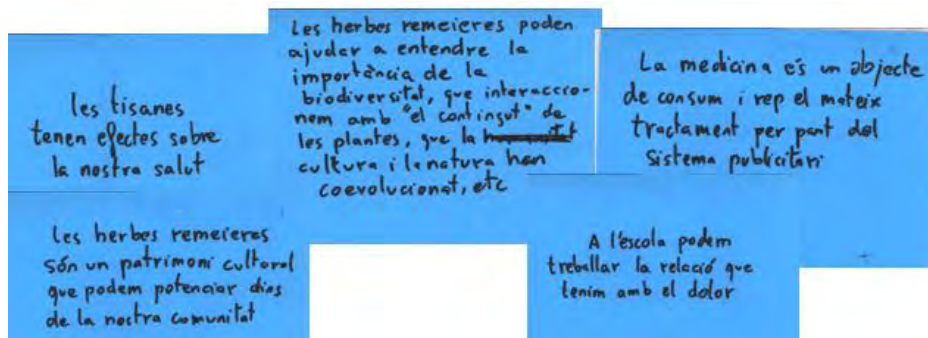 les tisanes
tenen efectes sobre
la nostra salut
Les herbes remeieres poden
ajudar a entendre la
importància de la
biodiversitat, que interaccio-
nem amb "el contingut" de
les plantes, que la
cultura i la natura han
coevolucionat, etc
La medicina és un objecte
de consum i rep el mateix
tractament per part del
sistema publicitari
Les herbes remeieres
són un patrimoni cultural
que podem potenciar dins
de la nostra comunitat
A l'escola podem
treballar la relació que
tenim amb el dolor